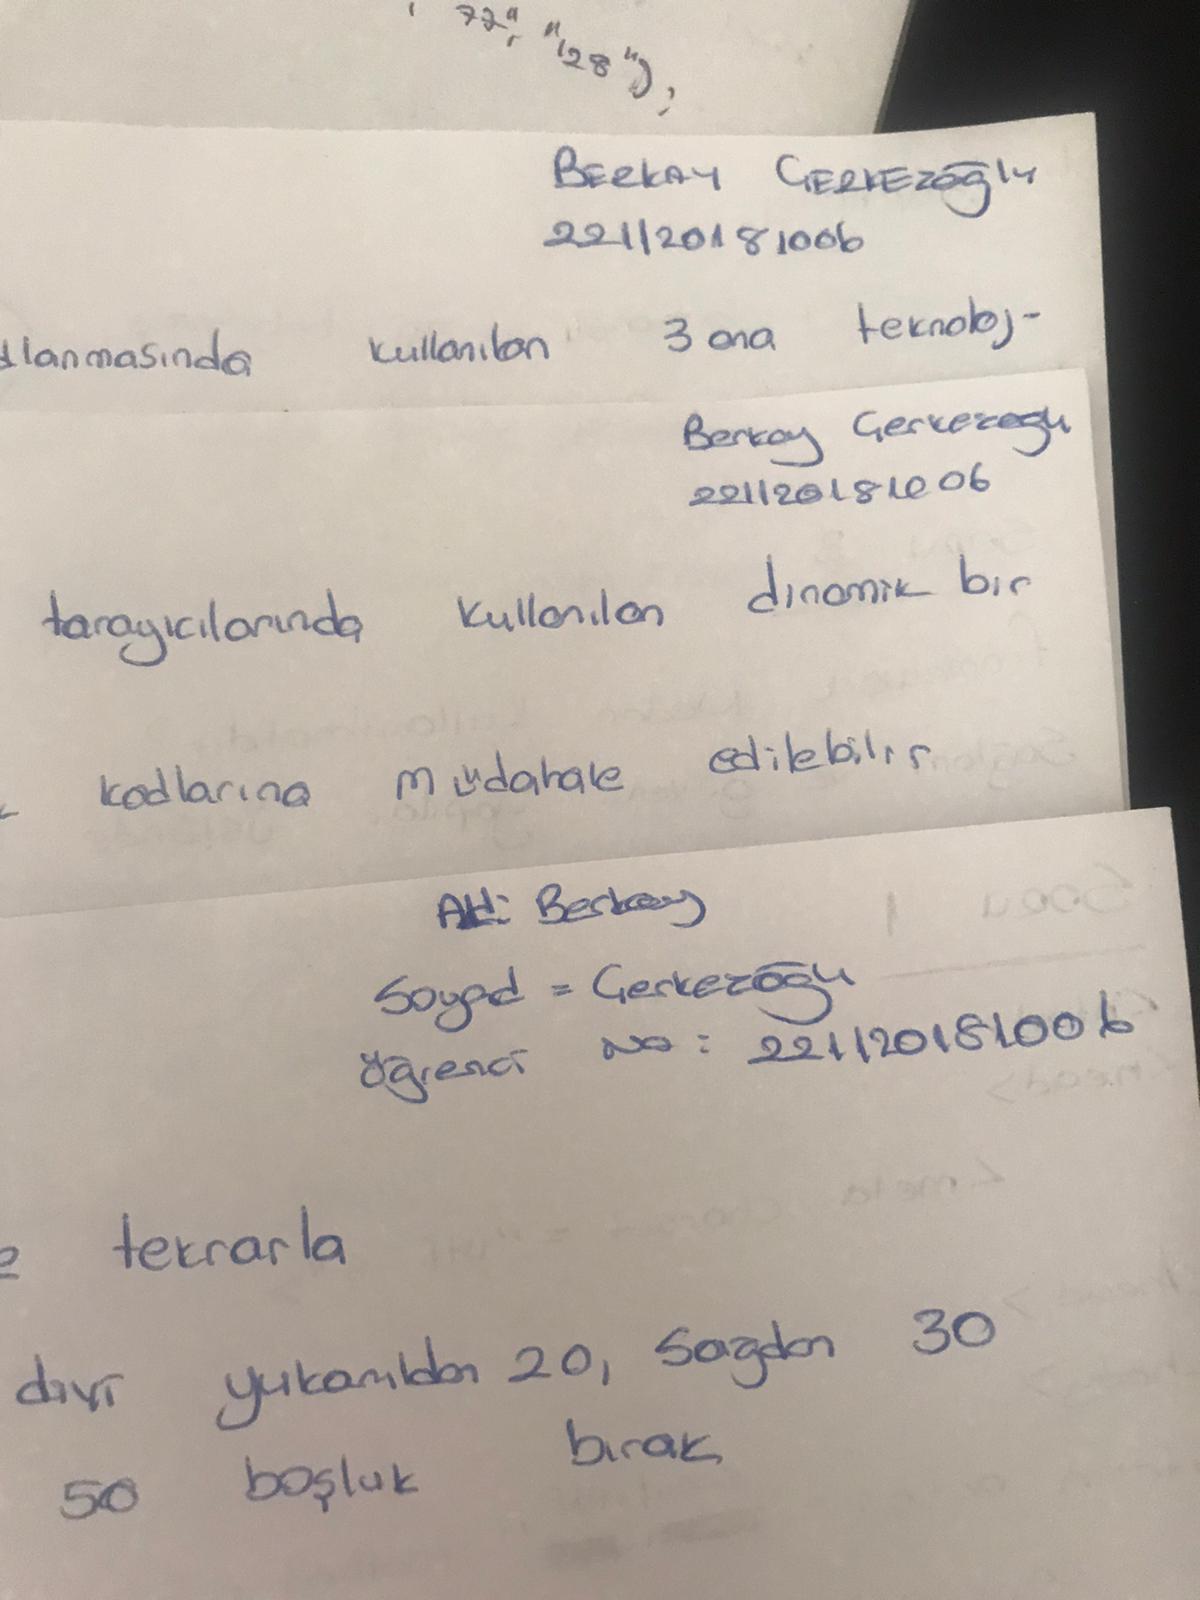 77", "128");
BERKAY GERKEZOĞLU
221120181006
kullanılan 3 ana teknoloj-
Berkay Gerkezoğlu
221120181006
tarayıcılarında kullanılan dinamik bir
kodlarına müdahale edilebilir
Ad: Berkay
Soyad = Gerkezoğlu
Öğrenci No: 221120181006
tekrarla
divi yukarıdan 20, sağdan 30
50 boşluk bırak